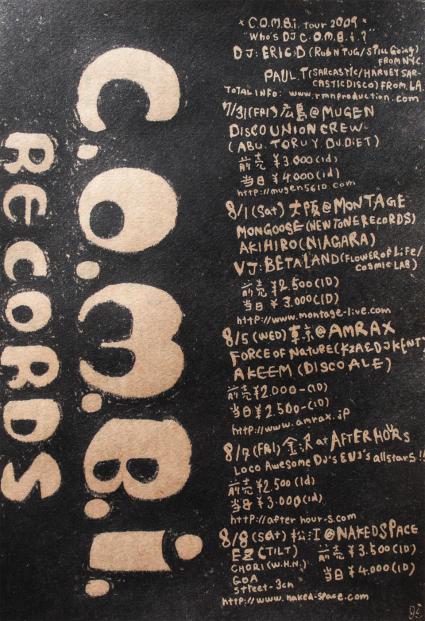 C.O.M.B.i.
RECORDS
* C.O.M.B.i. Tour 2009 *
"Who's DJ C.O.M.B.i.?"
DJ: ERIC D (Rub N TUG/STILL Going)
FROM NYC.
PAUL T (SARCASTIC/HARVEY SAR-
CASTIC DISCO) FROM LA.
TOTAL INFO: www.rmnproduction.com
7/31(FRI) 広島@MUGEN
DISCO UNION CREW
(ABU. TORU Y. DJ.DIET)
前売 ¥3,000(1D)
当日 ¥4,000(1d)
http://mugen5610.com
8/1(Sat) 大阪@MONTAGE
MONGOOSE(NEWTONE RECORDS)
AKIHIRO(NIAGARA)
VJ: BETALAND(FLOWER of LiFe/
COSMIC LAB)
前売 ¥2,500(1D)
当日 ¥3,000(1D)
http://www.montage-live.com
8/5(WED) 東京@AMRAX
FORCE OF NATURE(KZA & DJ KENT)
AKEEM (DISCO ALE)
前売 ¥2,000-(1D)
当日 ¥2,500-(1D)
http://www.amrax.jp
8/7(FRI) 金沢 at AFTER HOURS
LOCO Awesome DJ's & VJ's allstars!!
前売 ¥2,500(1d)
当日 ¥3,000(1d)
http://after hour-s.com
8/8(SAT) 松江@NAKEDSPACE
EZ (TILT) 前売 ¥3,500(1D)
CHORI (W.H.N.) 当日 ¥4,000(1D)
GOA
Street-3cn
http://www.naked-space.com